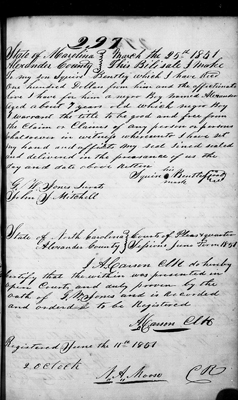 297
State of N Carolina } March the 25th 1851
Alexander County } This Bill sale I make
to my son Squire Bentley which I have Recd
One hundred Dollar from him and the affectionate
love I have for him a negro Boy named Alexander
aged about 7 years old which negro Boy
I warrant the title to be good and free from
the Claim or Claims of any person or persons
whatsoever in witness whereunto I have set
my hand and affixt my seal Sined sealed
and delivered in the presance of us the
day and date above writen
his
Squire Bentley
mark
G. W. Jones Jurat
John Mitchell
State of North Carolina } Court of Pleas & quarter
Alexander County } Sessions June Term 1851
I A Carson Clk do hereby
Certify that the within was presented in
open Court and duly proven by the
oath of G. W Jones and is Recorded
and ordered to be Registered
Carson Clk
Registered June the 10th 1851
2 O Clock